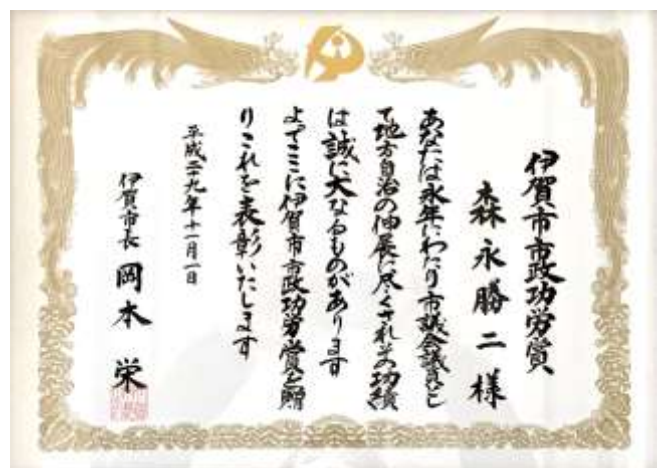 伊賀市市政功労賞
森永勝二様
あなたは永年にわたり市議会議員とし
て地方自治の伸展に尽くされその功績
は誠に大なるものがあります
よってここに伊賀市市政功労賞を贈
りこれを表彰いたします
平成二十九年十一月一日
伊賀市長 岡本栄